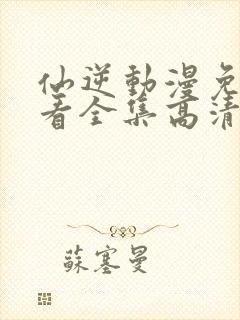 仙逆動漫免
看全集高清
蘇塞曼